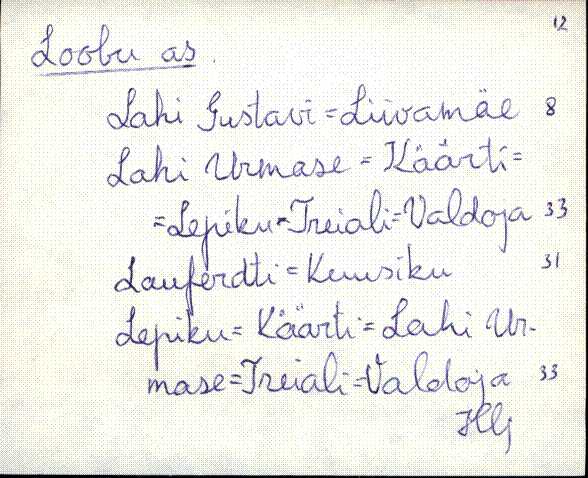 12
Loobu as.
Lahi Gustavi = Liivamäe 8
Lahi Urmase = Käärti =
= Lepiku = Treiali = Valdoja 33
Lauferdti = Kuusiku 31
Lepiku = Käärti = Lahi Ur-
mase = Treiali = Valdoja 33